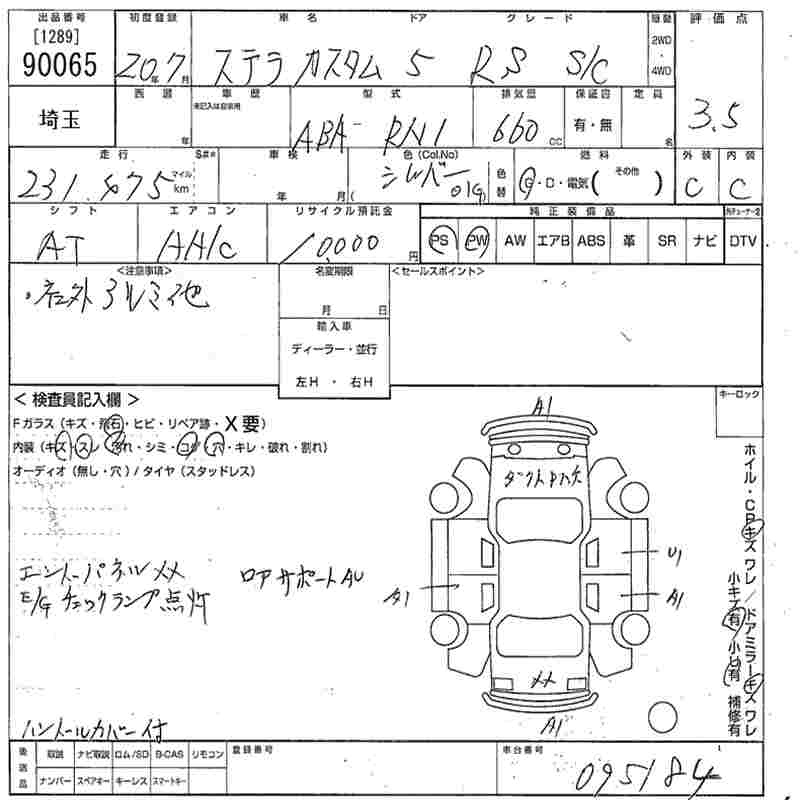 出品番号 初度登録 車名 ドア グレード 駆動 評価点
[1289]
90065 20年7月 ステラ カスタム 5 RS S/C 2WD・4WD 3.5
埼玉 年 車歴 未記入は自家用 型式 ABA- RN1 排気量 660cc 保証書 有・無 定員 名
走行 231,475 マイル km S## 車検 年 月( 色(Col.No) シルバー 01G) 色替 燃料 G・D・電気( その他 ) 外装 C 内装 C
シフト AT エアコン AA/C リサイクル預託金 10,000円 純正装備品
PS PW AW エアB ABS 革 SR ナビ DTV
<注意事項> 名変期限 <セールスポイント>
・社外アルミ他 月 日
輸入車
ディーラー・並行
左H ・ 右H
< 検査員記入欄 > キーロック
Fガラス (キズ・飛石・ヒビ・リペア跡・X要)
内装 (キズ・スレ・汚れ・シミ・コゲ・穴・キレ・破れ・割れ)
オーディオ (無し・穴) / タイヤ (スタッドレス)
A1
ダクト内ハゲ
エンドーパネルメメ ロアサポートAU
E/Gチェックランプ点灯
U1
A1 A1
メメ
A1
ハンドルカバー付
ホイル・CPキズ ワレ / ドアミラーキズ ワレ
小キズ有 小凹有 補修有
後送品 取説 ナビ取説 ロム/SD B-CAS リモコン 登録番号 車台番号
ナンバー スペアキー キーレス スマートキー 095184